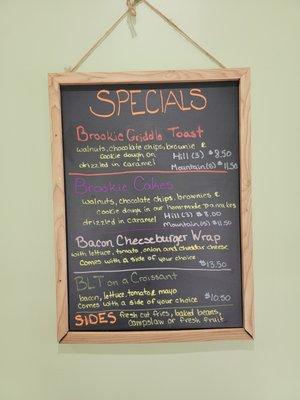 SPECIALS
Brookie Griddle Toast
walnuts, chocolate chips, brownie &
cookie dough on Hill (3) $8.50
drizzled in caramel Mountain (6) $11.50
Brookie Cakes
walnuts, chocolate chips, brownies &
cookie dough in our homemade pancakes
drizzled in caramel Hill (3) $8.00
Mountain (5) $11.50
Bacon Cheeseburger Wrap
with lettuce, tomato, onion and cheddar cheese
comes with a side of your choice
$13.50
BLT on a Croissant
bacon, lettuce, tomato & mayo
comes with a side of your choice $10.50
SIDES fresh cut fries, baked beans,
campslaw or fresh fruit